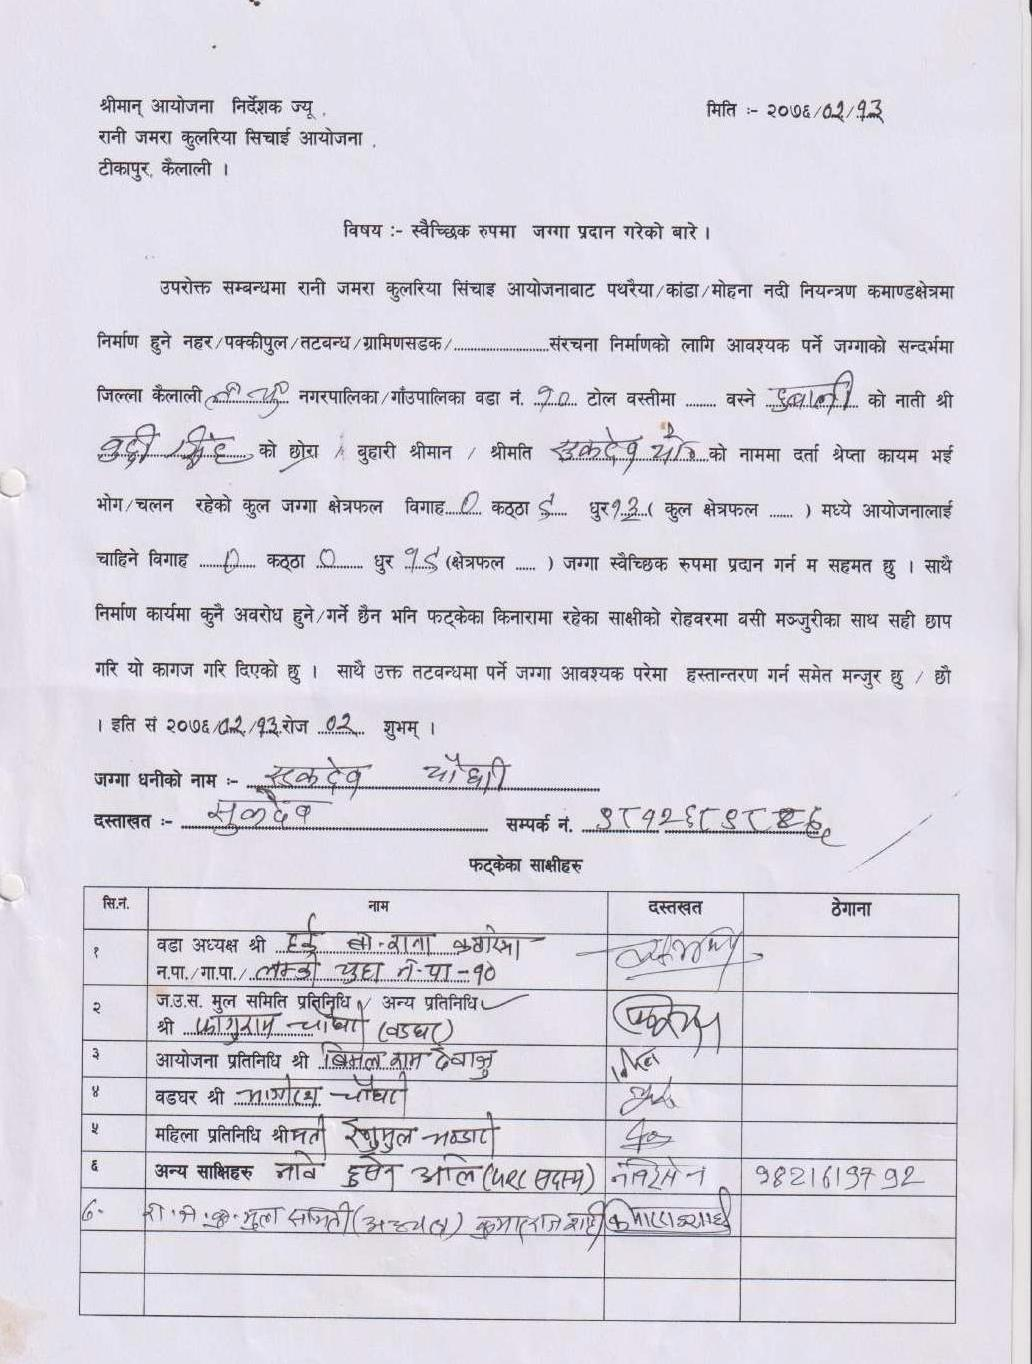 श्रीमान् आयोजना निर्देशक ज्यू ,
मिति :- २०७६/०२/१३
रानी जमरा कुलरिया सिचाई आयोजना ,
टीकापुर, कैलाली ।
विषय :- स्वैच्छिक रुपमा जग्गा प्रदान गरेको बारे ।
उपरोक्त सम्बन्धमा रानी जमरा कुलरिया सिंचाइ आयोजनाबाट पथरैया/कांडा/मोहना नदी नियन्त्रण कमाण्डक्षेत्रमा
निर्माण हुने नहर/पक्कीपुल/तटबन्ध/ग्रामिणसडक/........................संरचना निर्माणको लागि आवश्यक पर्ने जग्गाको सन्दर्भमा
जिल्ला कैलाली नगरपालिका/गाँउपालिका वडा नं. १० टोल वस्तीमा ........ वस्ने को नाती श्री
बुद्दी सिंह को छोरा / बुहारी श्रीमान / श्रीमति सुकदेव चौ को नाममा दर्ता श्रेप्ता कायम भई
भोग/चलन रहेको कुल जग्गा क्षेत्रफल विगाह 0 कठ्ठा धुर १३ ( कुल क्षेत्रफल ...... ) मध्ये आयोजनालाई
चाहिने विगाह 0 कठ्ठा 0 धुर (क्षेत्रफल ..... ) जग्गा स्वैच्छिक रुपमा प्रदान गर्न म सहमत छु । साथै
निर्माण कार्यमा कुनै अवरोध हुने/गर्ने छैन भनि फट्केका किनारामा रहेका साक्षीको रोहवरमा वसी मञ्जुरीका साथ सही छाप
गरि यो कागज गरि दिएको छु । साथै उक्त तटवन्धमा पर्ने जग्गा आवश्यक परेमा हस्तान्तरण गर्न समेत मन्जुर छु / छौ
। इति सं २०७६/०२/१३ रोज ०२ शुभम् ।
जग्गा धनीको नाम :- सुकदेव चौधरी
दस्ताखत :- सुकदेव सम्पर्क नं.
फट्केका साक्षीहरु
सि.नं. नाम दस्तखत ठेगाना
१ वडा अध्यक्ष श्री
न.पा./गा.पा./ लम्की चुहा न.पा-१०
२ ज.उ.स. मुल समिति प्रतिनिधि / अन्य प्रतिनिधि
श्री फागुराम चौधरी (वडघर)
३ आयोजना प्रतिनिधि श्री बिमल राम
४ वडघर श्री चौधरी
५ महिला प्रतिनिधि श्रीमती
६ अन्य साक्षिहरु नवि हुसेन अलि ( सदस्य) 9821613792
रा.ज.कु. मुल समिती (अध्यक्ष)